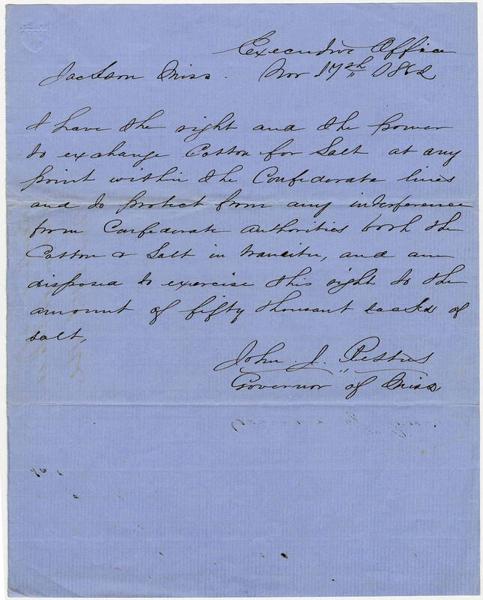 Executive Office
Jackson Miss. Nov 17th 1862
I have the right and the power
to exchange Cotton for Salt at any
point within the Confederate lines
and to protect from any interference
from Confederate authorities both the
Cotton & Salt in transitu, and am
disposed to exercise this right to the
amount of fifty thousant sacks of
salt,
John J. Pettus
Governor of Miss